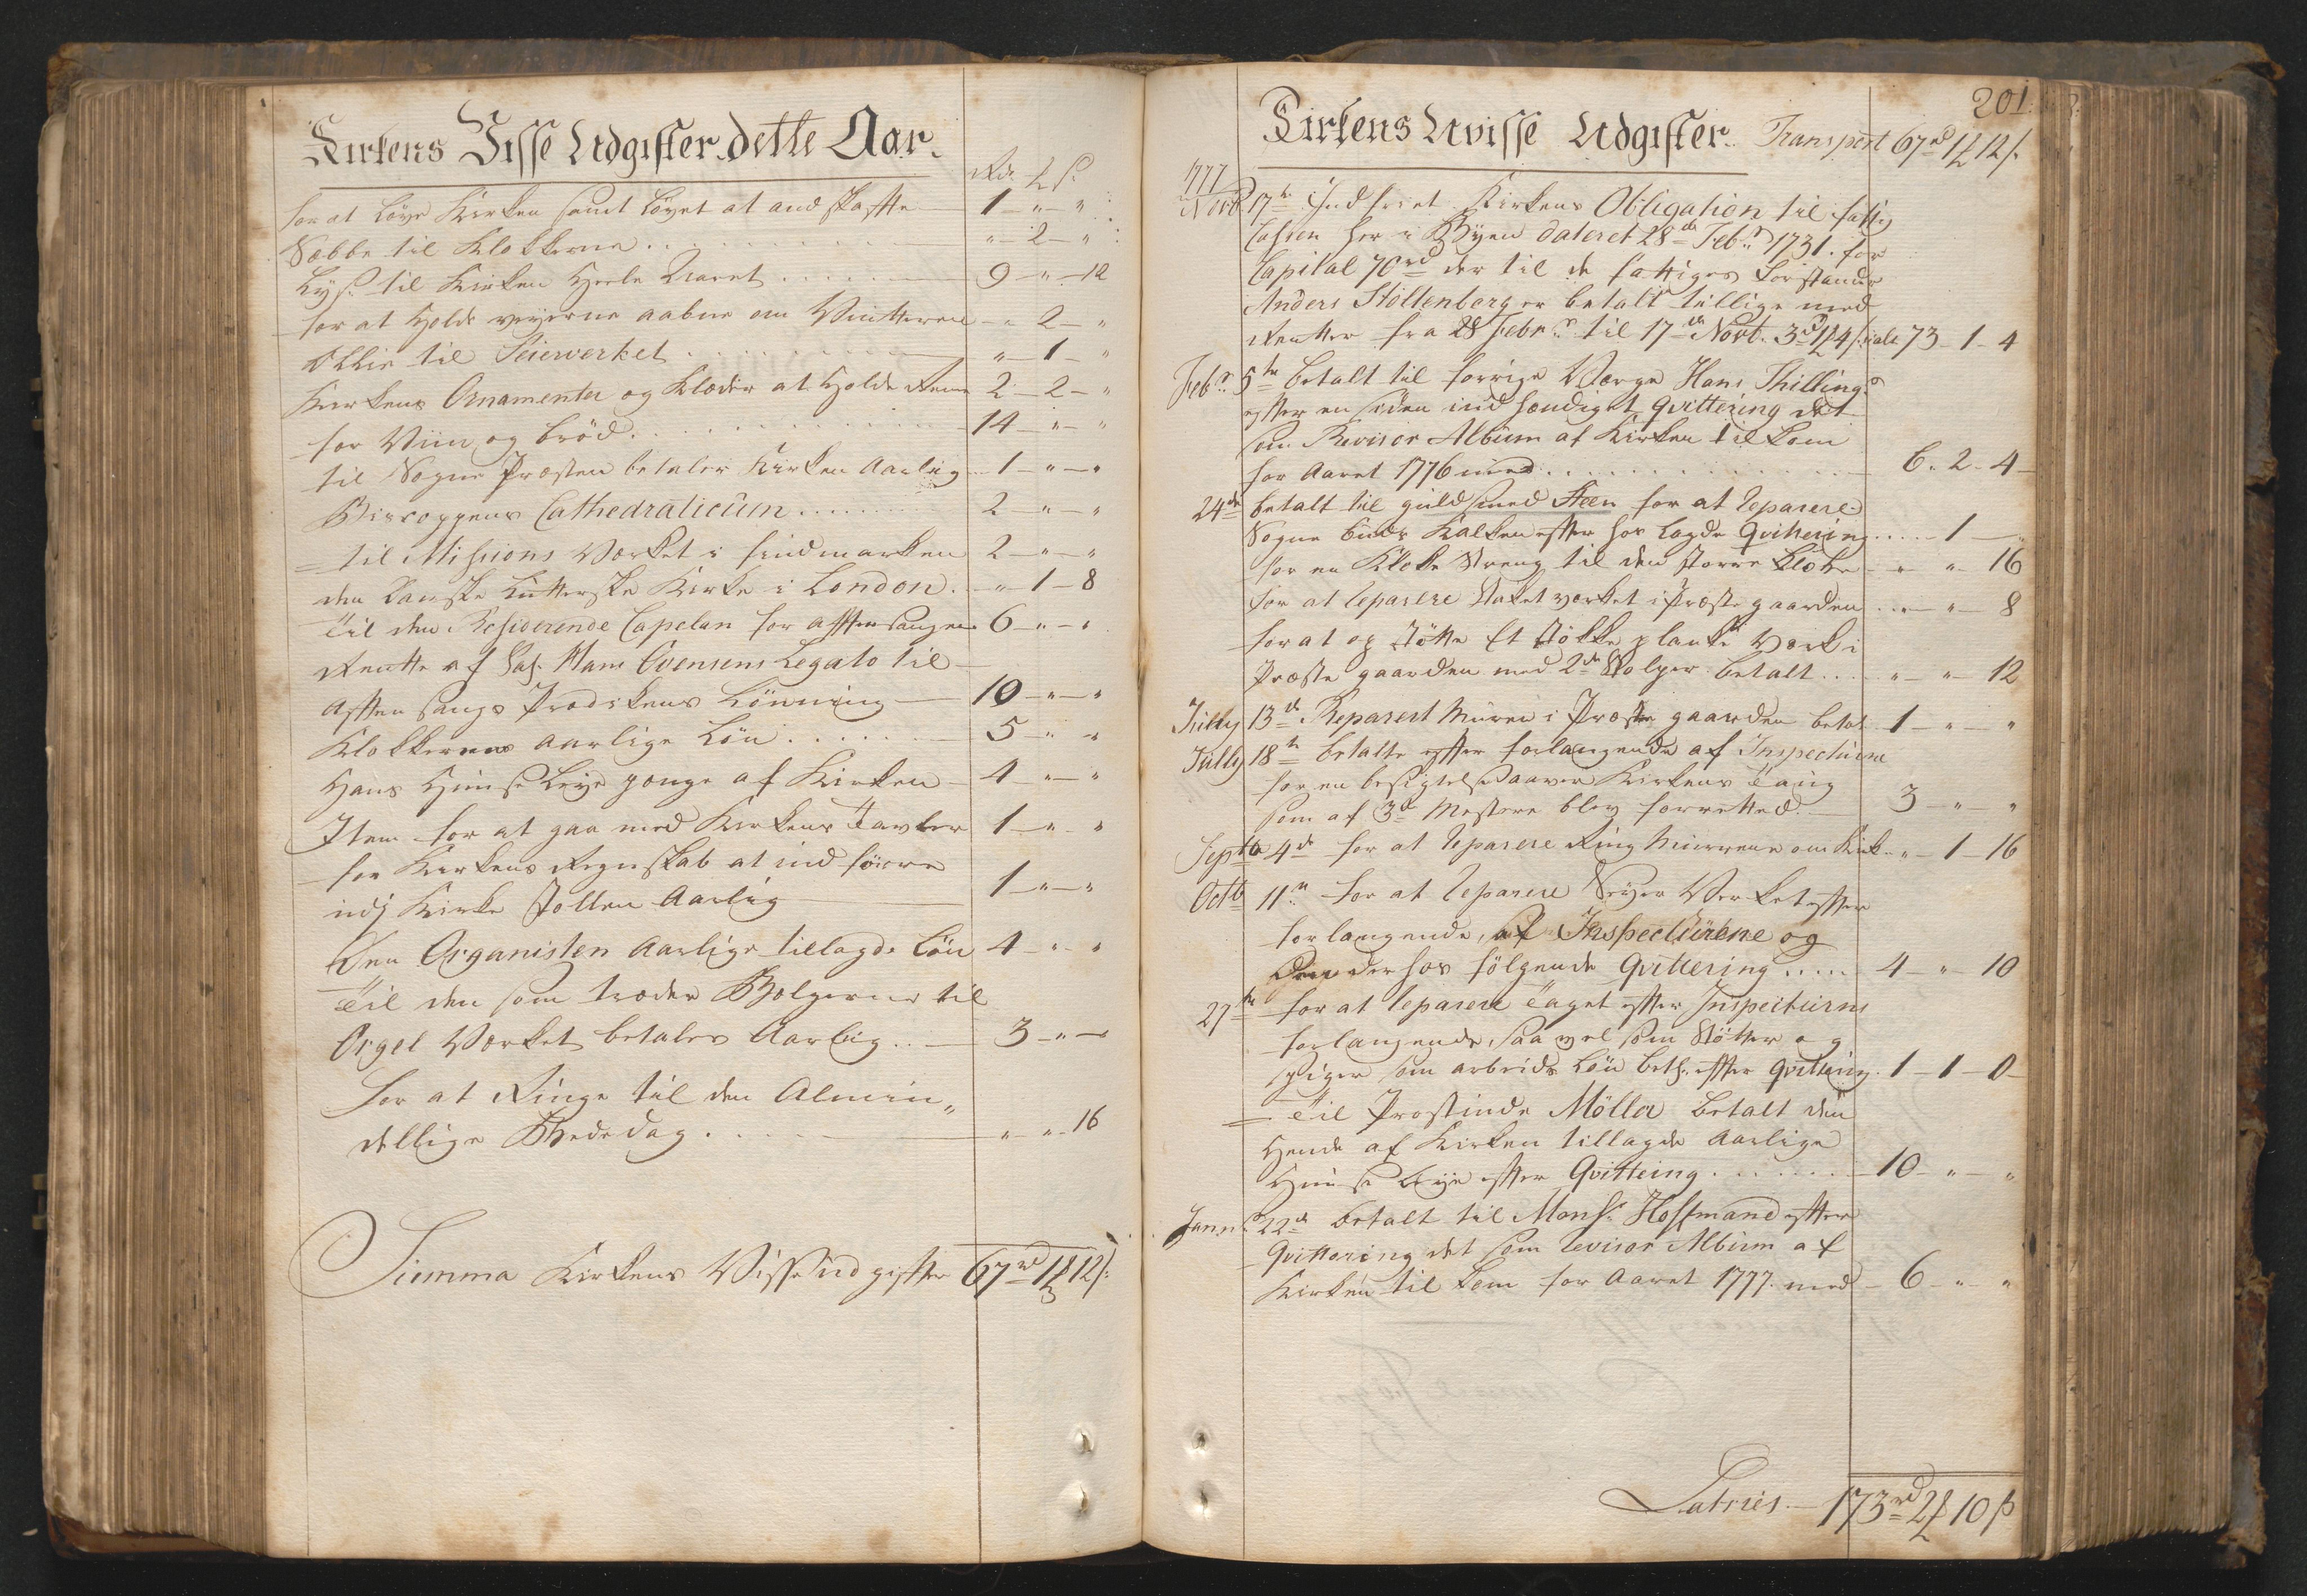 Kirkens Visse Udgifter dette Aar.
Rdr. ℔ s.
for at Löye Kirken samt Löyet at andskaffe 1 - " - "
Sæbbe til Klokkerne . . . . . " - 2 - "
Lys til Kirken Heele Aaret . . . . . 9 - " - 12
for at Holde veyerne aabne om Vintteren - " 2 - "
Ollie til Seierverket . . . . . " - 1 - "
Kirkens Ornamenter og Klæder at Holde Rene 2 - 2 - "
for Viin og bröd . . . . . 14 - " - "
til Sogne Præsten betaler Kirken Aarlig 1 - " - "
Biscoppens Cathedraticum . . . . . 2 - " - "
til Missions Værket i findmarken 2 - " - "
den Danske Lutterske Kirke i London . - " - 1 - 8
Til den Residerende Capelan for afftensangen 6 - " - "
Rentte af Sal. Hans Evensens Legato til
Afften sangs Prædikens Lönning 10 - " - "
Klokkerens aarlige Lön . . . . . 5 - " - "
Hans Huuse Leye penge af Kirken 4 - " - "
Item for at gaa med Kirkens Tavler 1 - " - "
for Kirkens Regnskab at indföre
udj Kirke stollen Aarlig 1 - " - "
Den Organisten Aarlige tillagde Lön 4 - " - "
Til den som træder Bælgerne til
Orgel Værket betales Aarlig . . 3 - " -
for at Ringe til den Almin„
dellige Bededag . . . . . " - " - 16
Summa Kirkens Visse udgiffter 67rd 1℔ 12s.
201.
Kirkens Uvisse Udgifter. Transport 67rd 1℔ 12s.
1777
Novb 17de Indfriet Kirkens Obligation til fattig
Cassen her i Byen dateret 28de Febr. 1731. for
Capital 70rd der til de fattiges Forstander
Anders Stoltenberg er betalt tillige med
Rentter fra 28 Febr. til 17de Novb. 3rd 1℔ 4s. er alt 73 - 1 - 4
Febr. 5te betalt til forrige Værge Hans Thilling
efter en siden indhændiget qvittering det
som Revisor Album af Kirken til kom
for Aaret 1776 med . . . . . 6 . 2 - 4 -
24de betalt til guldsmed Steen for at reparere
Sogne buds Kalken effter hos lagde Qvittering . . . . - 1 -
for en Klokke Streng til den större Klokke - " - " - 16
for at reparere Staket værket i Præste gaarden . . " - " - 8
for at op stötte Et stökke planke værk i
Præste gaarden med 2de Stolper betalt . . . " - " - 12
Jully 13de Reparert Muren i Præste gaarden betal 1 - " - "
Jully 18de betalte effter forlangende af Inspecteurerne
for en besigtelse over Kirkens Taug
som af 3de Mestere blev forretted. 3 - " - "
Septb 4de for at reparere Ring Muurene om Kirk. . " - 1 - 16
Octb 11te for at reparere Seyer Verket effter
forlangende, af Inspecteurene og
den der hos fölgende Qvittering . . . . 4 - " - 10
27de for at reparere Taget effter Inspecteurns
forlangende, saa vel som Stötter og
Spiger som arbeids Lön bet. effter qvittering. 1 - 1 - 0 -
= Til Provstinde Möller betalt den
Hende af Kirken tillagde Aarlige
Huuse Leye effter Qvitteing . . . . . 10 - " - "
Januar 22de betalt til Mons. Hoffmand effter
Qvittering det som revisor Album af
Kirken til kom for Aaret 1777. med - 6 - " - "
Latries - 173rd 2℔ 10s